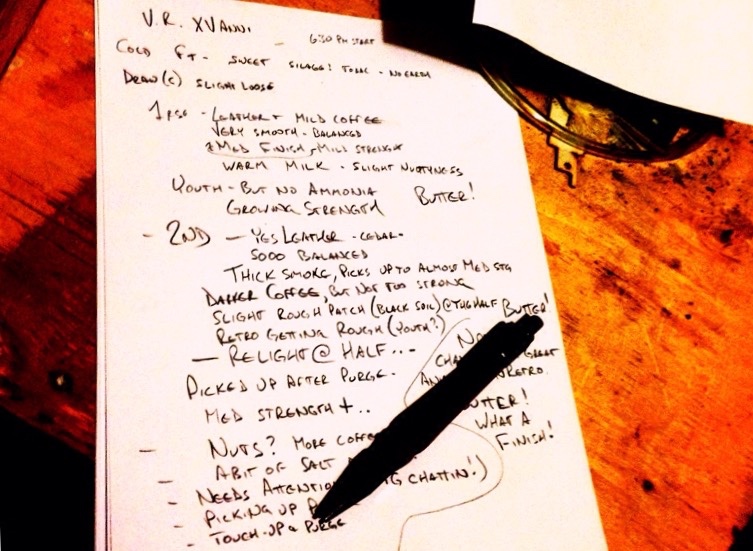 V.R. XV ANNI
6:30 PM START
COLD FT - SWEET SILAGE! TOBAC - NO EARTH
DRAW (C) SLIGHT LOOSE
1 RST - LEATHER + MILD COFFEE
VERY SMOOTH - BALANCED
MED FINISH - MILD STRENGTH
WARM MILK - SLIGHT NUTTYNESS
YOUTH - BUT NO AMMONIA
GROWING STRENGTH
BUTTER!
- 2ND - YES LEATHER - CEDAR -
SOOO BALANCED
THICK SMOKE, PICKS UP TO ALMOST MED STG
DARKER COFFEE, BUT NOT TOO STRONG
SLIGHT ROUGH PATCH (BLACK SOIL) @ THE HALF
BUTTER!
RETRO GETTING ROUGH (YOUTH?)
- RELIGHT @ HALF...
PICKED UP AFTER PURGE.
MED STRENGTH +..
GREAT
RETRO.
BUTTER!
WHAT A
FINISH!
- NUTS? MORE
ABIT OF SALT
- NEEDS ATTENTION CHATTIN!)
- PICKING UP
- TOUCH-UP & PURGE